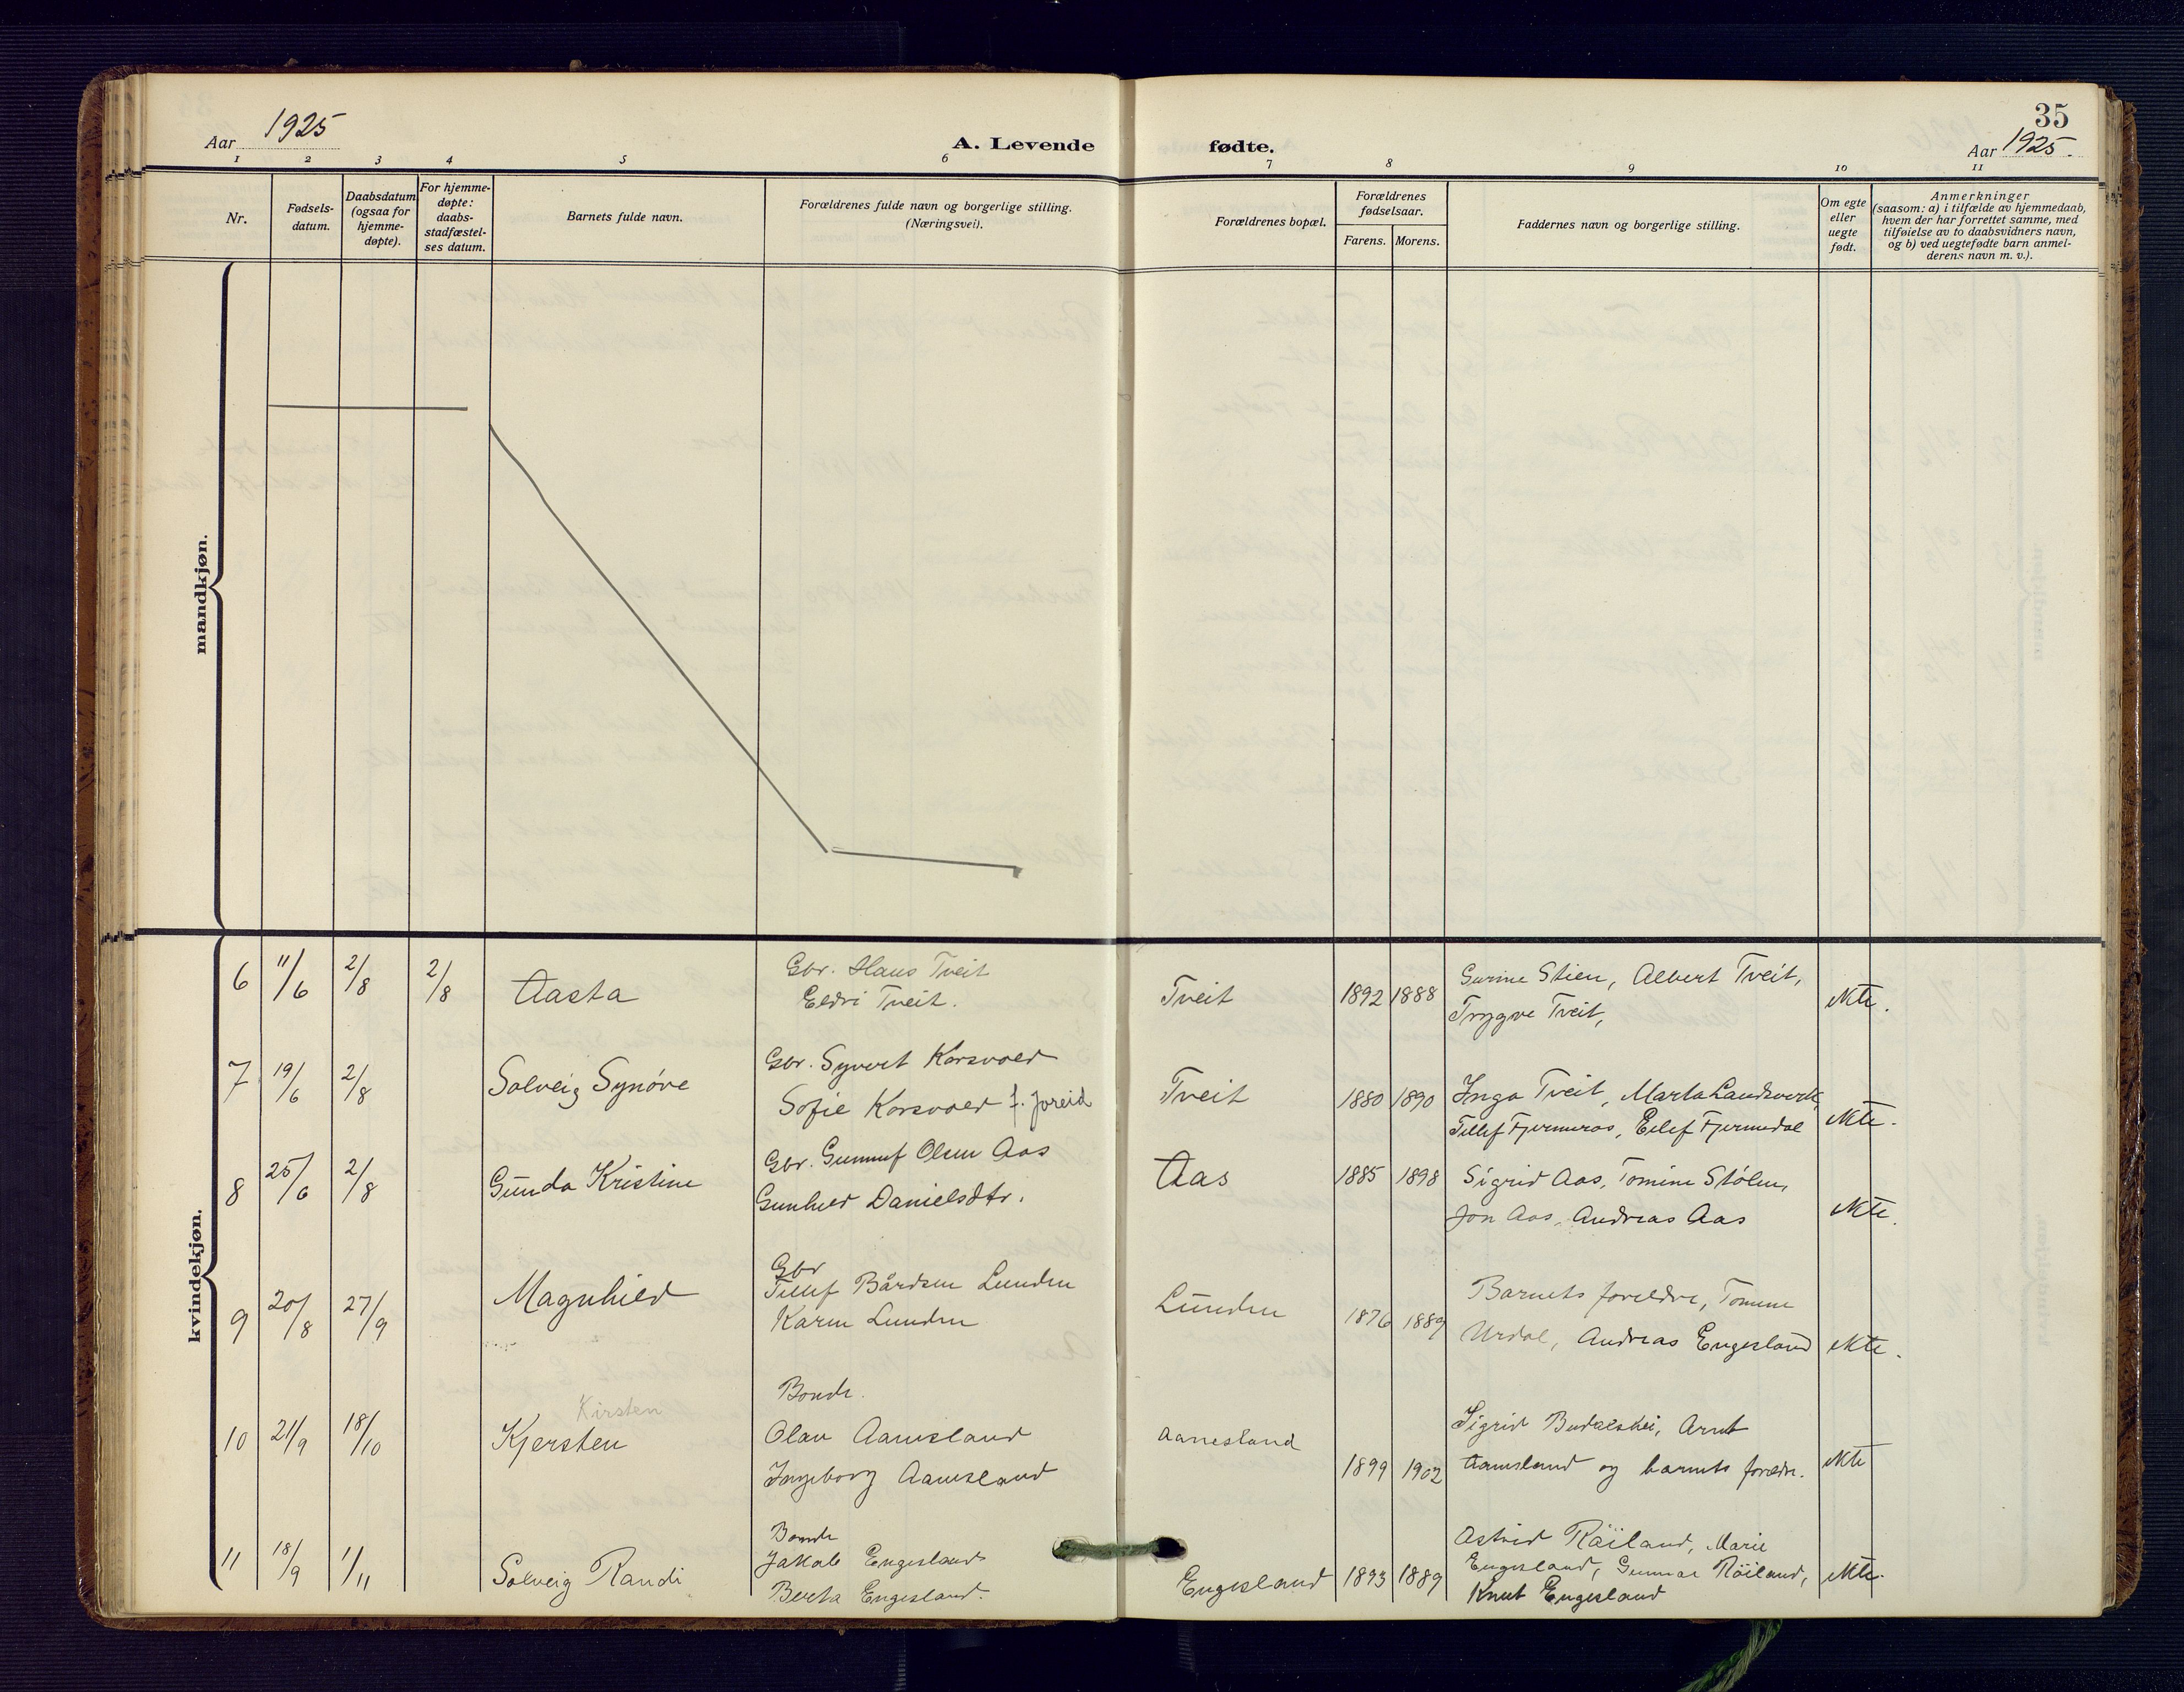 35
Aar 1925
A. Levende fødte.
Aar 1925.
1 2 3 4 5 6 7 8 9 10 11
Nr.
Fødsels-
datum.
Daabsdatum
(ogsaa for
hjemme-
døpte).
For hjemme-
døpte:
daabs-
stadfæstel-
ses datum.
Barnets fulde navn.
Forældrenes fulde navn og borgerlige stilling.
(Næringsvei).
Forældrenes bopæl.
Forældrenes
fødselsaar.
Farens. Morens.
Faddernes navn og borgerlige stilling.
Om egte
eller
uegte
født.
Anmerkninger
(saasom: a) i tilfælde av hjemmedaab,
hvem der har forrettet samme, med
tilføielse av to daabsvidners navn,
og b) ved uegtefødte barn anmel-
derens navn m. v.).
mandkjøn.
kvindekjøn.
6 11/6 2/8 2/8 Aasta
Gbr. Hans Tveit
Eldri Tveit.
Tveit 1892 1888
Gurine Stien, Albert Tveit,
Trygve Tveit,
Ekte.
7 19/6 2/8 Solveig Synøve
Gbr. Syvert Korsvold
Sofie Korsvold f.
Tveit 1880 1890
Inga Tveit, Marta Landsverk,
Tellef Fjermeros, Eilef Fjermedal
Ekte.
8 25/6 2/8 Gunda Kristine
Gbr. Gunnuf Olsen Aas
Gunhild Danielsdtr.
Aas 1885 1898
Sigrid Aas, Tomine Stølen,
Jon Aas, Andreas Aas
Ekte.
9 20/8 27/9 Magnhild
Gbr
Tellef Bårdsen Lunden
Karen Lunden
Lunden 1876 1889
Barnets foreldre, Tomine
Urdal, Andreas Engesland
Ekte.
10 21/9 18/10 Kjersten
Kirsten
Bonde.
Olav Aanesland
Ingeborg Aanesland
Aanesland 1899 1902
Sigrid Budalskei, Arnt
Aanesland og barnets foreldr.
Ekte
11 18/9 1/11 Solveig Randi
Bonde
Jakob Engesland
Berta Engesland.
Engesland 1893 1889
Astrid Røiland, Marie
Engesland, Gunnar Røiland,
Knut Engesland
Ekte.